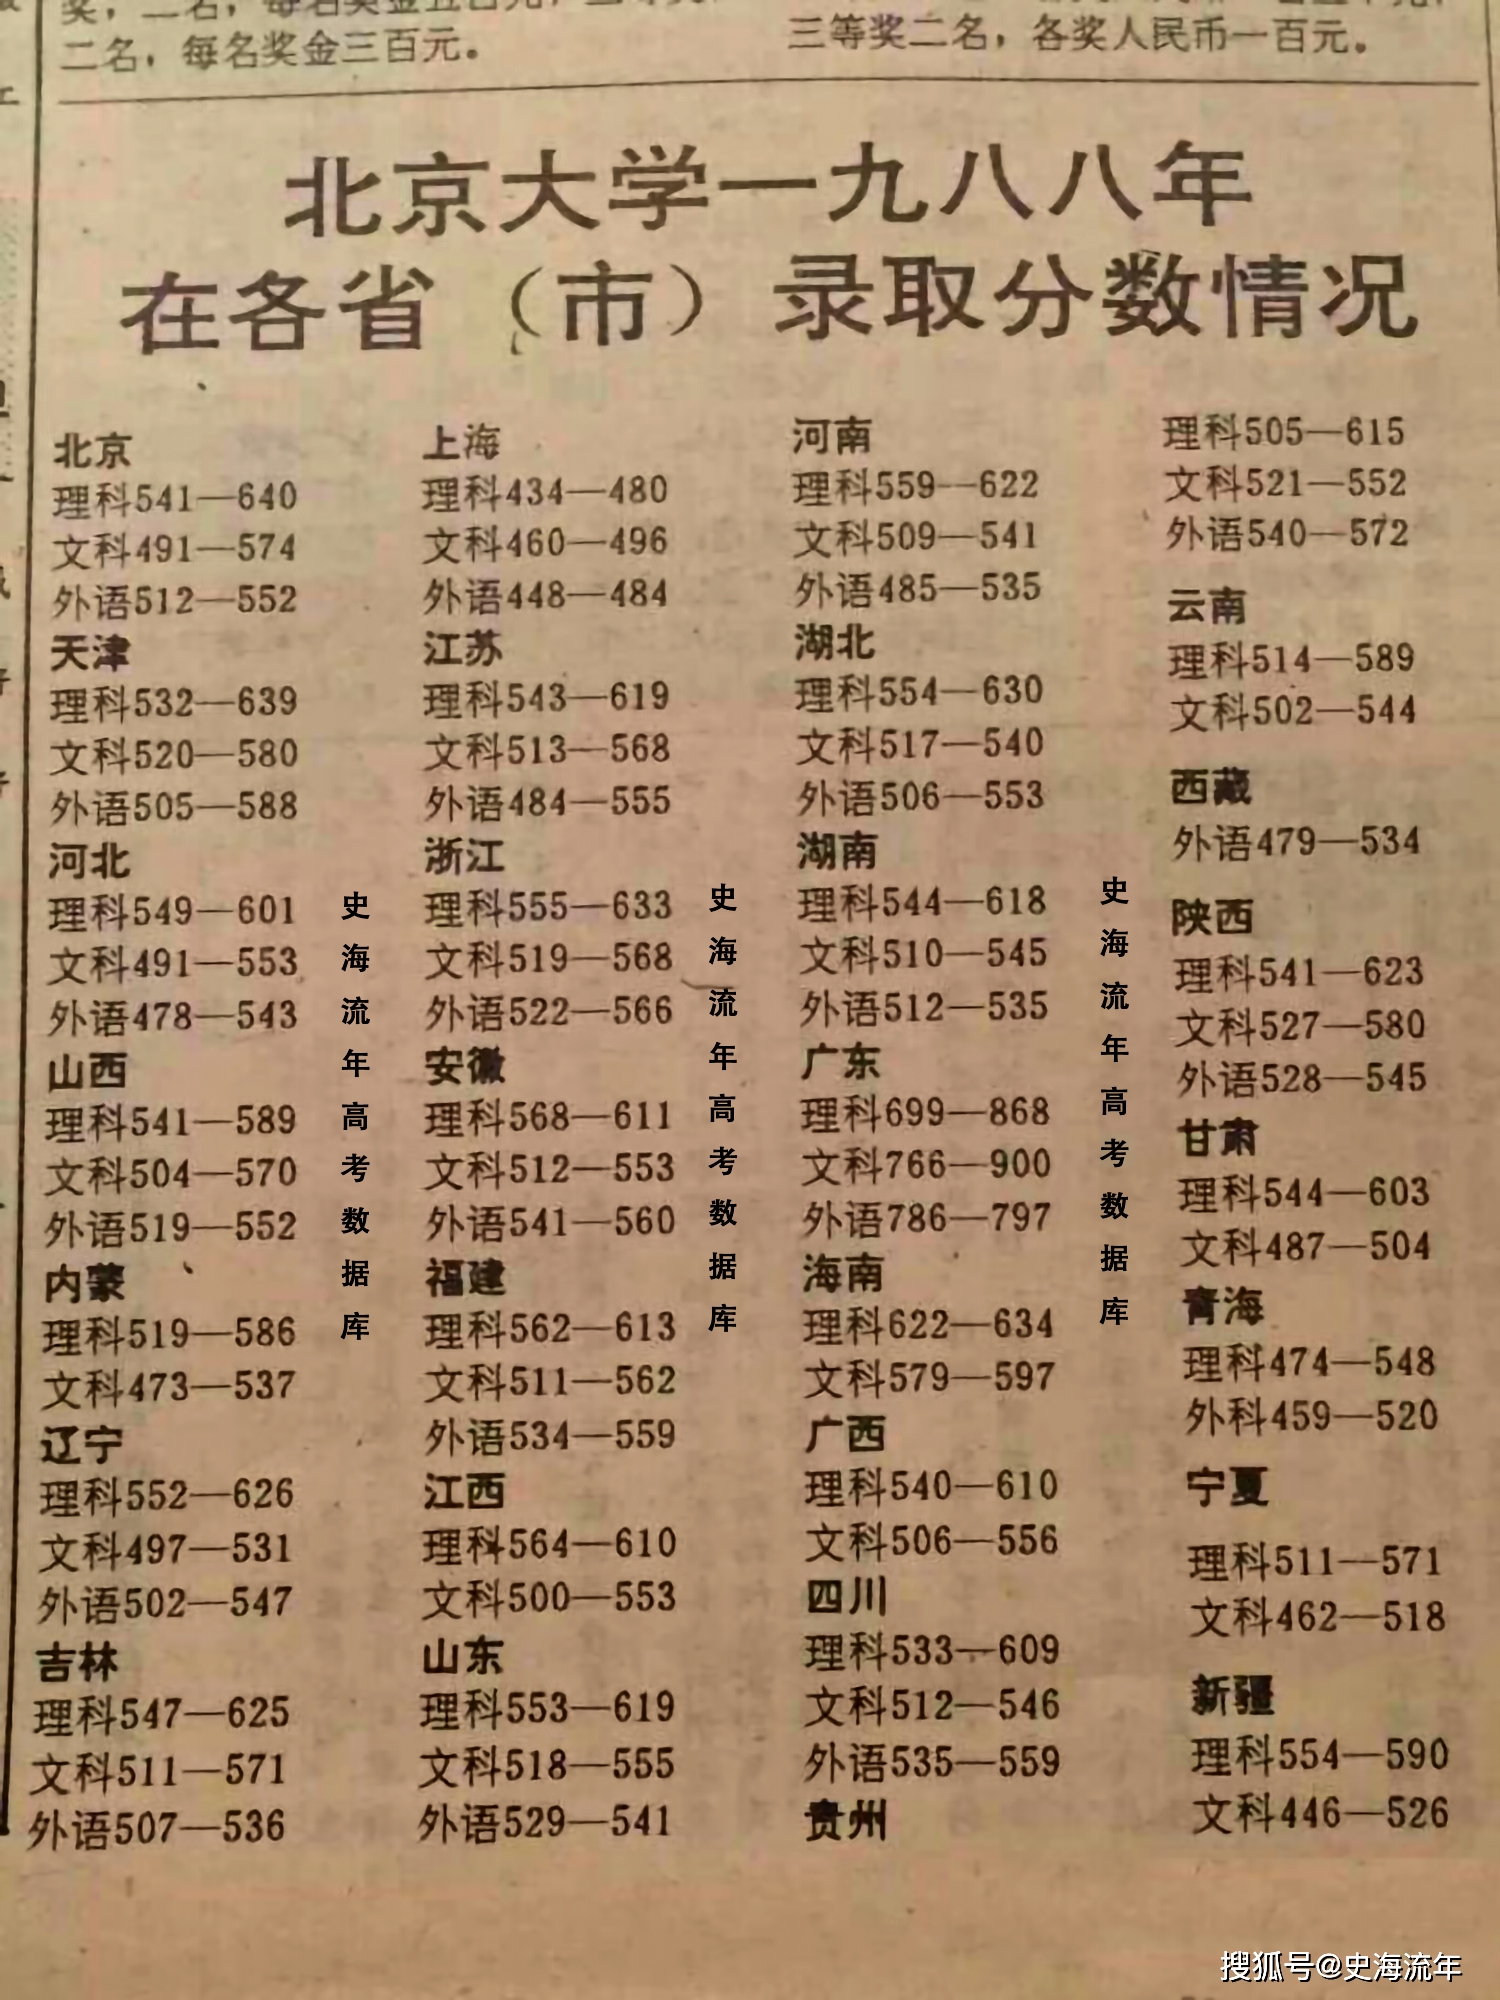 二名，每名奖金三百元。
三等奖二名，各奖人民币一百元。
北京大学一九八八年
在各省（市）录取分数情况
北京
理科541—640
文科491—574
外语512—552
天津
理科532—639
文科520—580
外语505—588
河北
理科549—601
文科491—553
外语478—543
山西
理科541—589
文科504—570
外语519—552
内蒙
理科519—586
文科473—537
辽宁
理科552—626
文科497—531
外语502—547
吉林
理科547—625
文科511—571
外语507—536
史海流年高考数据库
上海
理科434—480
文科460—496
外语448—484
江苏
理科543—619
文科513—568
外语484—555
浙江
理科555—633
文科519—568
外语522—566
安徽
理科568—611
文科512—553
外语541—560
福建
理科562—613
文科511—562
外语534—559
江西
理科564—610
文科500—553
山东
理科553—619
文科518—555
外语529—541
史海流年高考数据库
河南
理科559—622
文科509—541
外语485—535
湖北
理科554—630
文科517—540
外语506—553
湖南
理科544—618
文科510—545
外语512—535
广东
理科699—868
文科766—900
外语786—797
海南
理科622—634
文科579—597
广西
理科540—610
文科506—556
四川
理科533—609
文科512—546
外语535—559
贵州
史海流年高考数据库
理科505—615
文科521—552
外语540—572
云南
理科514—589
文科502—544
西藏
外语479—534
陕西
理科541—623
文科527—580
外语528—545
甘肃
理科544—603
文科487—504
青海
理科474—548
外科459—520
宁夏
理科511—571
文科462—518
新疆
理科554—590
文科446—526
搜狐号@史海流年